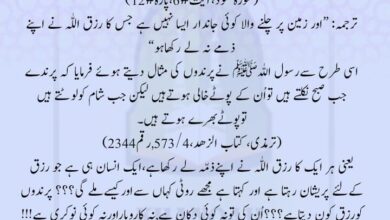 (سورہ ھود، آیت#6، پارہ#12)
ترجمہ: ”اور زمین پر چلنے والا کوئی جاندار ایسا نہیں ہے جس کا رزق اللہ نے اپنے
ذمے نہ لے رکھا ہو“
اسی طرح سے رسول اللہ ﷺ نے پرندوں کی مثال دیتے ہوئے فرمایا کہ پرندے
جب صبح نکلتے ہیں تو اُن کے پوٹے خالی ہوتے ہیں لیکن جب شام کو لوٹتے ہیں
تو پوٹے بھرے ہوتے ہیں۔
(ترمذی، کتاب الزھد، 573/4، رقم 2344)
یعنی ہر ایک کا رزق اللہ نے اپنے ذمّہ لے رکھا ہے، ایک انسان ہی ہے جو رزق
کے لئے پریشان رہتا ہے اور کہتا ہے مجھے روٹی کہاں سے اور کیسے ملے گی؟؟؟ پرندوں
کو رزق کون دیتا ہے؟؟؟ اُن کی تو نہ کوئی دکان ہے نہ کاروبار اور نہ کوئی نوکری ہے!!!